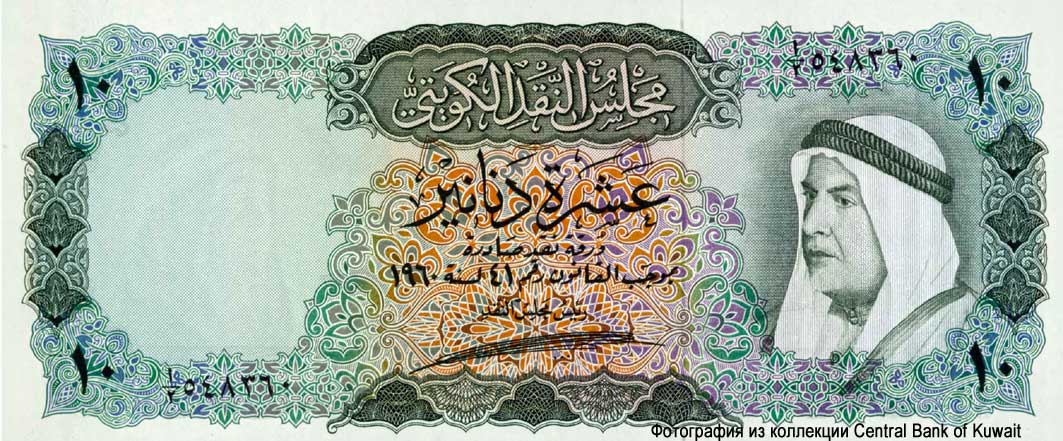 ١٠
١/٢ ٥٤٨٣٦٠
١٠
مجلس النقد الكويتي
عشرة دنانير
ورقة نقد صادرة
بموجب القانون رقم ٤١ لسنة ١٩٦٠
رئيس مجلس النقد
١٠
١/٢ ٥٤٨٣٦٠
١٠
Фотография из коллекции Central Bank of Kuwait